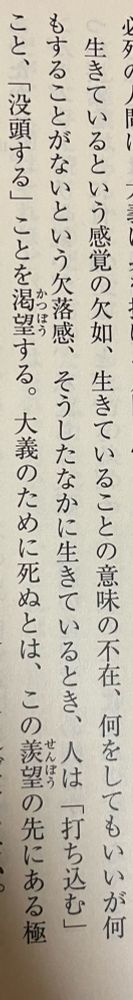 生きているという感覚の欠如、生きていることの意味の不在、何をしてもいいが何
もすることがないという欠落感、そうしたなかに生きているとき、人は「打ち込む」
こと、「没頭する」ことを渇望する。大義のために死ぬとは、この羨望の先にある極